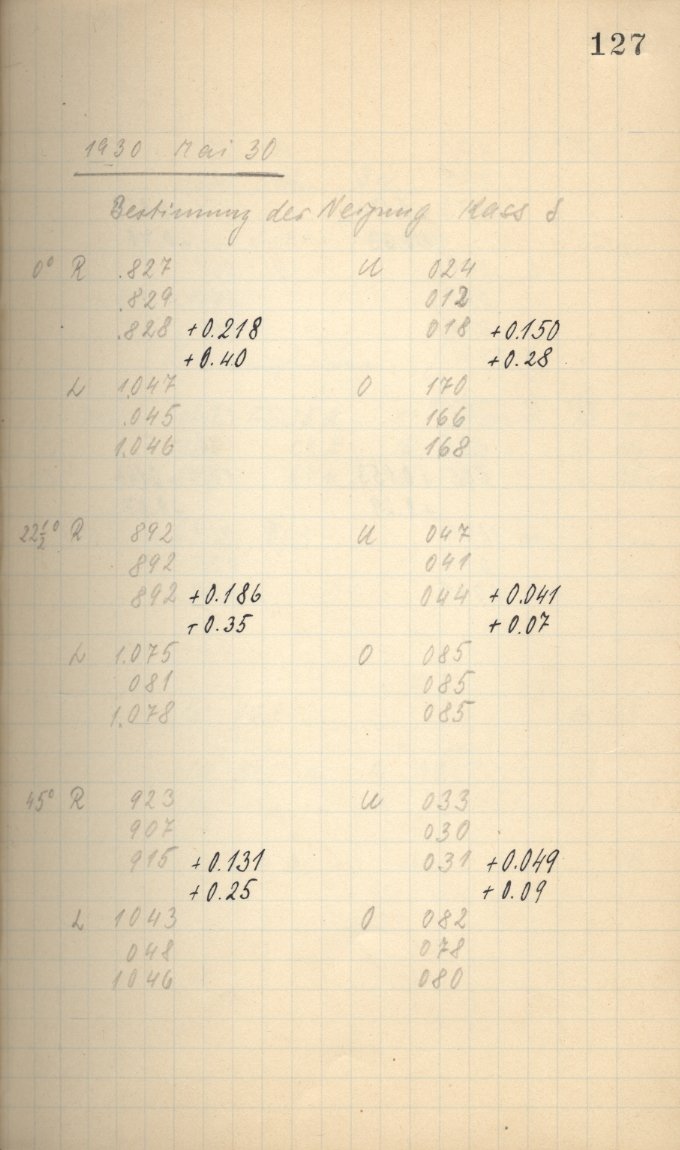 127
1930 Mai 30
Bestimmung der Neigung Kass 8
0° R .827 U 024
.829 012
.828 +0.218 018 +0.150
+0.40 +0.28
L 1.047 O 170
.045 166
1.046 168
22½° R 892 U 047
892 041
892 +0.186 044 +0.041
+0.35 +0.07
L 1.075 O 085
081 085
1.078 085
45° R 923 U 033
907 030
915 +0.131 031 +0.049
+0.25 +0.09
L 1043 O 082
048 078
1046 080